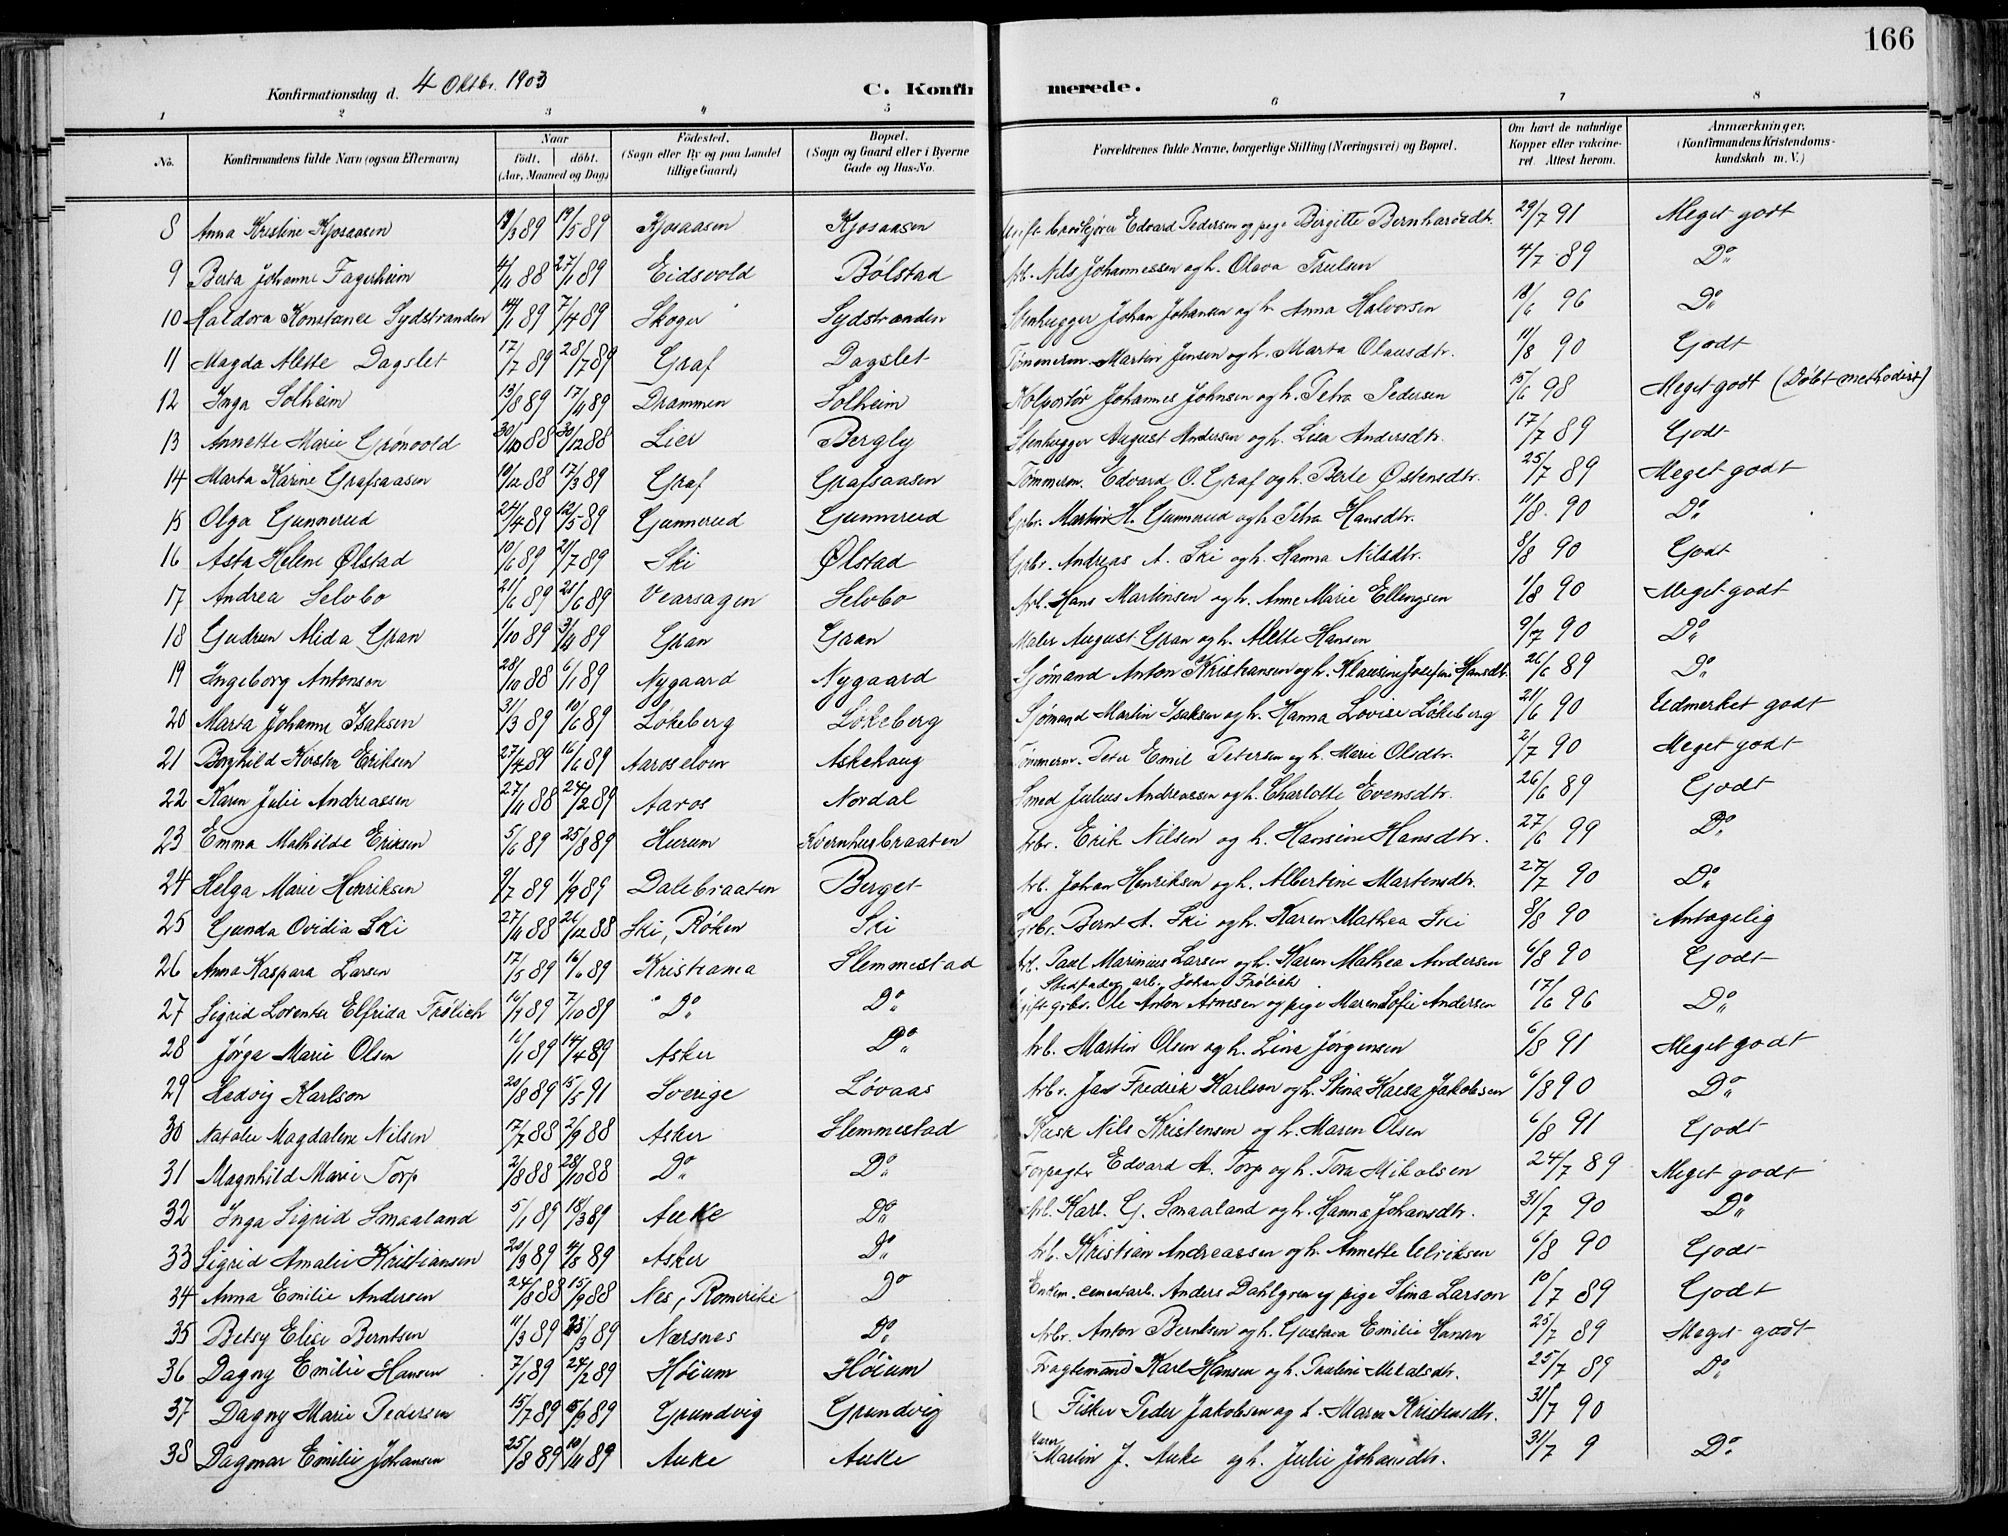 166
Konfirmationsdag d. 4 Oktbr. 1903
C. Konfirmerede.
1 2 3 4 5 6 7 8
No. Konfirmandens fulde Navn (ogsaa Efternavn) Naar født. døbt. (Aar, Maaned og Dag) Fødested. (Sogn eller By og paa Landet tillige Gaard) Bopæl. (Sogn og Gaard eller i Byerne Gade og Hus-No. Forældrenes fulde Navne, borgerlige Stilling (Næringsvei) og Bopæl. Om havt de naturlige Kopper eller vakcineret. Attest herom. Anmærkninger. (Konfirmandens Kristendomskundskab m. V.)
8 Anna Kristine Kjosaasen /3 89 19/5 89 Kjosaasen Kjosaasen Edvard Pedersen og pige Birgitte Bernhardsdtr. 29/7 91 Meget godt
9 Berta Johanne Fagerheim 4/11 88 27/1 89 Eidsvold Bølstad Arb. Nils Johannessen og h. Olava Trulsen 4/7 89 Do
10 Haldora Konstance Sydstranden 14/1 89 7/4 89 Skoger Sydstranden Stenhugger Johan Johansen og h. Anna Halvorsen 18/6 96 Do
11 Magda Alette Dagslet 17/7 89 28/7 89 Graf Dagslet Tømmerm. Martin Jensen og h. Marta Olausdtr. 11/8 90 Godt
12 Inga Solheim 13/8 89 17/11 89 Drammen Solheim Kolportør Johannes Johnsen og h. Petra Pedersen 15/6 98 Meget godt (Døbt methodist)
13 Annette Marie Grønvold 30/10 88 30/12 88 Lier Bergly Stenhugger August Andersen og h. Lisa Andersdtr. 17/7 89 Godt
14 Marta Karine Grafsaasen 19/12 88 17/3 89 Graf Grafsaasen Tømmerm. Edvard O. Graf og h. Berte Østensdtr. 25/7 89 Meget godt
15 Olga Gunnerud 24/4 89 12/5 89 Gunnerud Gunnerud Grbr. Martin H. Gunnerud og h. Petra Hansdtr. 11/8 90 Do
16 Asta Helene Ølstad 10/6 89 21/7 89 Ski Ølstad Grbr. Andreas A. Ski og h. Hanna Nilsdtr. 8/8 90 Godt
17 Andrea Selvbo 21/6 89 21/6 89 Vearsagen Selvbo Arb. Hans Martinsen og h. Anne Marie Ellingsen 1/8 90 Meget godt
18 Gudrun Alida Gran 1/10 89 3/11 89 Gran Gran Maler August Gran og h. Alette Hansen 9/7 90 Do
19 Ingeborg Antonsen 28/10 88 6/1 89 Nygaard Nygaard Sjømand Anton Kristiansen og h. Klausine Josefine Hansdtr. 26/6 89 Do
20 Marta Johanne Isaksen 31/3 89 10/6 89 Løkeberg Løkeberg Sjømand Martin Isaksen og h. Hanna Lovise Løkeberg 21/6 90 Udmerket godt
21 Borghild Kirstin Eriksen 27/4 89 16/6 89 Aaroselven Askehaug Tømmerm. Peter Emil Petersen og h. Marie Olsdtr. 2/7 90 Meget godt
22 Karen Julie Andreassen 27/11 88 24/2 89 Aaros Nordal Smed Julius Andreassen og h. Charlotte Evensdtr. 26/6 89 Godt
23 Emma Mathilde Eriksen 5/6 89 25/8 89 Hurum Kvernhusbraaten Arbr. Erik Nilsen og h. Hansine Hansdtr. 27/6 99 Do
24 Helga Marie Henriksen 9/7 89 1/9 89 Dalebraaten Berget Arb. Johan Henriksen og h. Albertine Martensdtr. 27/7 90 Do
25 Gunda Ovidia Ski 27/11 88 26/12 88 Ski, Røken Ski Grbr. Bernt A. Ski og h. Karen Mathea Ski 8/8 90 Antagelig
26 Anna Kaspara Larsen 17/5 89 16/6 89 Kristiania Slemmestad Arb. Paul Marinius Larsen og h. Karen Mathea Andersen 6/8 90 Godt
Stedfader arb. Johan Frølich
27 Sigrid Lorentse Elfrida Frølich 16/9 89 7/10 89 Do Do Ole Anton Arnesen og pige Maren Sofie Andersen 17/6 96 Do
28 Jørga Marie Olsen 16/1 89 14/4 89 Asker Do Arb. Martin Olsen og h. Lina Jørgensen 6/8 91 Meget godt
29 Hedvig Karlson 20/8 89 15/5 91 Sverige Løvaas Arbr. Jan Fredrik Karlson og h. Stina Kaesa Jakobsen 6/8 90 Do
30 Natalie Magdalene Nilsen 17/7 88 2/9 88 Asker Slemmestad Kusk Nils Kristensen og h. Maren Olsen 6/8 91 Godt
31 Magnhild Marie Torp 2/8 88 28/10 88 Do Do Forpagtr Edvard A. Torp og h. Tora Mikalsen 24/7 89 Meget godt
32 Inga Sigrid Smaaland 5/1 89 18/3 89 Auke Do Arb. Karl. G. Smaaland og h. Hanna Johansdtr. 31/7 90 Do
33 Sigrid Amalie Kristiansen 20/3 89 4/8 89 Asker Do Arb. Kristian Andreassen og h. Annette Ulriksen 6/8 90 Godt
34 Anna Emilie Andersen 24/8 88 15/9 88 Nes, Romerike Do Enkem. cementarb. Anders Dahlgren og pige Stina Larson 10/7 89 Godt
35 Betsy Elise Berntsen 11/3 89 23/3 89 Nærsnes Do Arbr. Anton Berntsen og h. Gustava Emilie Hansen 25/7 89 Meget godt
36 Dagny Emilie Hansen 7/1 89 24/2 89 Høium Høium Fragtemand Karl Hansen og h. Pauline Mikalsdtr. 25/7 89 Do
37 Dagny Marie Pedersen 15/7 89 15/9 89 Grundvig Grundvig Fisker Peder Jakobsen og h. Maren Kristensdtr. 31/7 90
38 Dagmar Emilie Johansen 25/8 89 10/11 89 Auke Auke Martin J. Auke og h. Julie Johansdtr. 31/7 9 Do